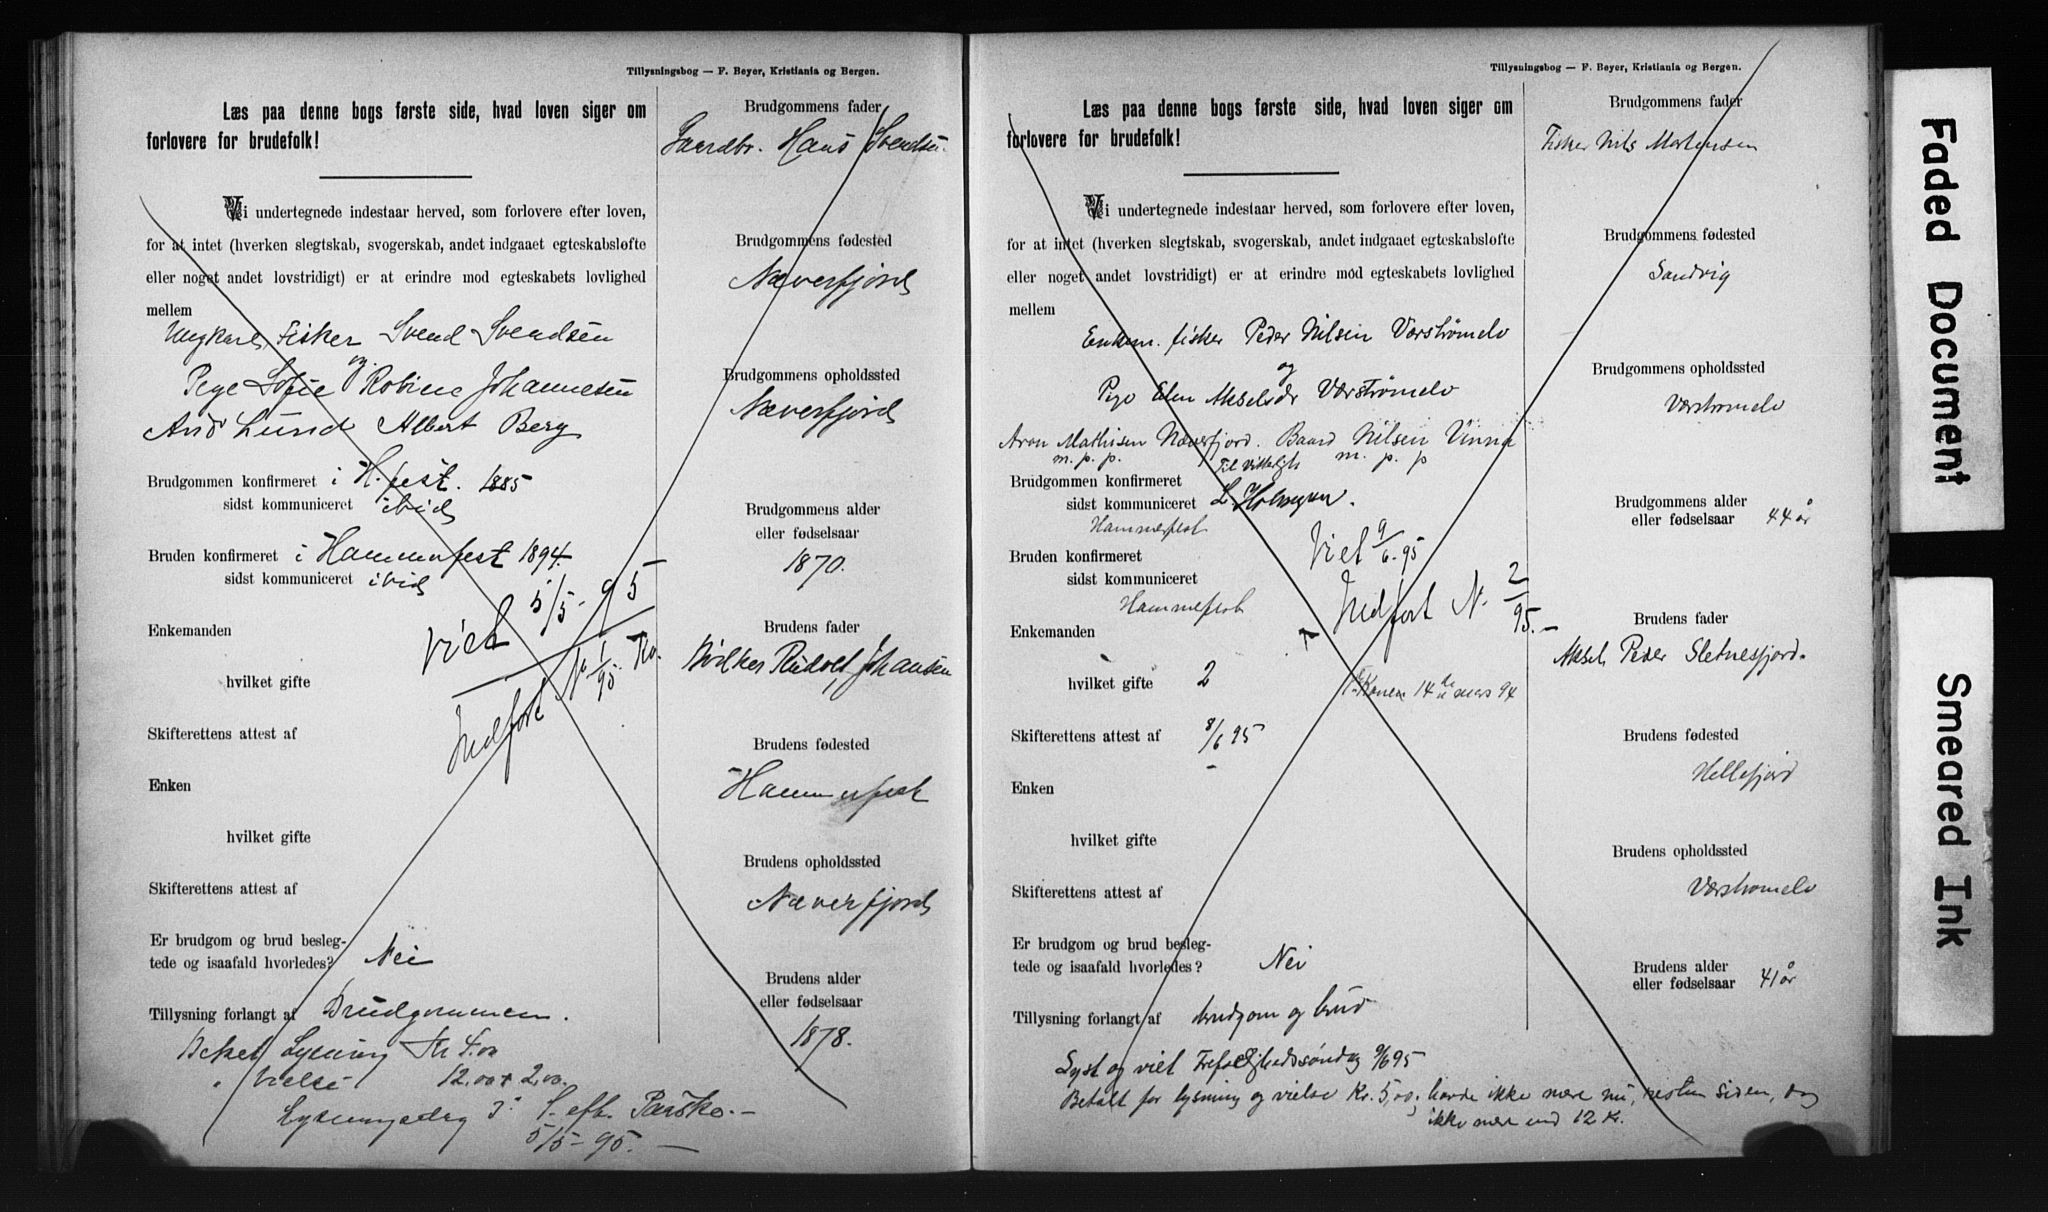 Tillysningsbog — F. Beyer, Kristiania og Bergen.
Læs paa denne bogs første side, hvad loven siger om
forlovere for brudefolk!
Vi undertegnede indestaar herved, som forlovere efter loven,
for at intet (hverken slegtskab, svogerskab, andet indgaaet egteskabsløfte
eller noget andet lovstridigt) er at erindre mod egteskabets lovlighed
mellem
Ungkarl, Fisker Svend Svendsen
og
Pige Sofie Robine Johannesen
And Lund Albert Berg
Brudgommen konfirmeret i H.fest. 1885
sidst kommuniceret ibid
Bruden konfirmeret i Hammerfest 1894.
sidst kommuniceret ibid
Viet 5/5-95
Indført N. 1/95
Enkemanden
hvilket gifte
Skifterettens attest af
Enken
hvilket gifte
Skifterettens attest af
Er brudgom og brud besleg-
tede og isaafald hvorledes? Nei
Tillysning forlangt af Brudgommen.
Betalt Lysning Kr 4.00
" Vielse 12.00 + 2.00.
Lysningsdag 3' S. eft. Paaske.—
5/5-95.—
Brudgommens fader
Gaardbr. Hans Svendsen.
Brudgommens fødested
Næverfjord
Brudgommens opholdssted
Næverfjord
Brudgommens alder
eller fødselsaar
1870.
Brudens fader
Rudolf Johansen
Brudens fødested
Hammerfest
Brudens opholdssted
Næverfjord
Brudens alder
eller fødselsaar
1878.
Tillysningsbog — F. Beyer, Kristiania og Bergen.
Læs paa denne bogs første side, hvad loven siger om
forlovere for brudefolk!
Vi undertegnede indestaar herved, som forlovere efter loven,
for at intet (hverken slegtskab, svogerskab, andet indgaaet egteskabsløfte
eller noget andet lovstridigt) er at erindre mod egteskabets lovlighed
mellem
Enkem. fisker Peder Nilsen Værstrømelv
og
Pige Elen Akselsdr Værstrømelv
Aron Mathisen Næverfjord. Baard Nilsen Vinna
m. p. p. m. p. p
Til Vitterligh
Brudgommen konfirmeret
sidst kommuniceret
Hammerfest
Viet 9/6-95
Bruden konfirmeret
sidst kommuniceret
Hammerfest
Indført N. 2/95.—
Enkemanden
hvilket gifte 2
Konen 14de mars 94
Skifterettens attest af 8/6 95
Enken
hvilket gifte
Skifterettens attest af
Er brudgom og brud besleg-
tede og isaafald hvorledes? Nei
Tillysning forlangt af brudgom og brud
Lyst og viet Trefoldighedssøndag 9/6 95
Betalt for lysning og vielse Kr. 5,00, havde ikke mere nu, resten siden, dog
ikke mere end 12 Kr.
Brudgommens fader
Fisker Nils Mortensen
Brudgommens fødested
Sandvig
Brudgommens opholdssted
Værstrømelv
Brudgommens alder
eller fødselsaar 44 år
Brudens fader
Aksel Peder Sletnesfjord.
Brudens fødested
Hellefjord
Brudens opholdssted
Værstrømelv
Brudens alder
eller fødselsaar 41 år
Faded Document
Smeared Ink